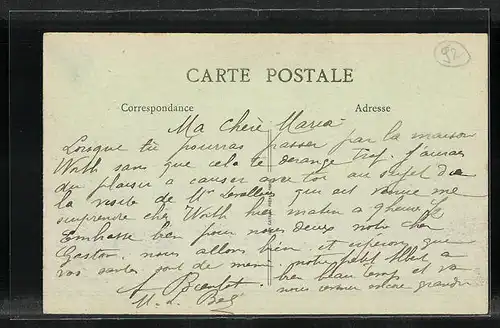 92
CARTE POSTALE
Correspondance
Adresse
Ma Chère Maria
Lorsque tu pourras passer par la maison
Worth sans que cela te derange trop, j'aurais
du plaisir a causer avec toi au sujet de
la visite de Me qui est venue me
surprendre chez Worth hier matin a 9 heure ½
Embrasse bien pour nous deux notre cher
Gaston, nous allons bien et esperons que
vos santés sont de meme. notre petit Albert a
A Bientot bien beau temps et va
M. L. nous venir encore grandir